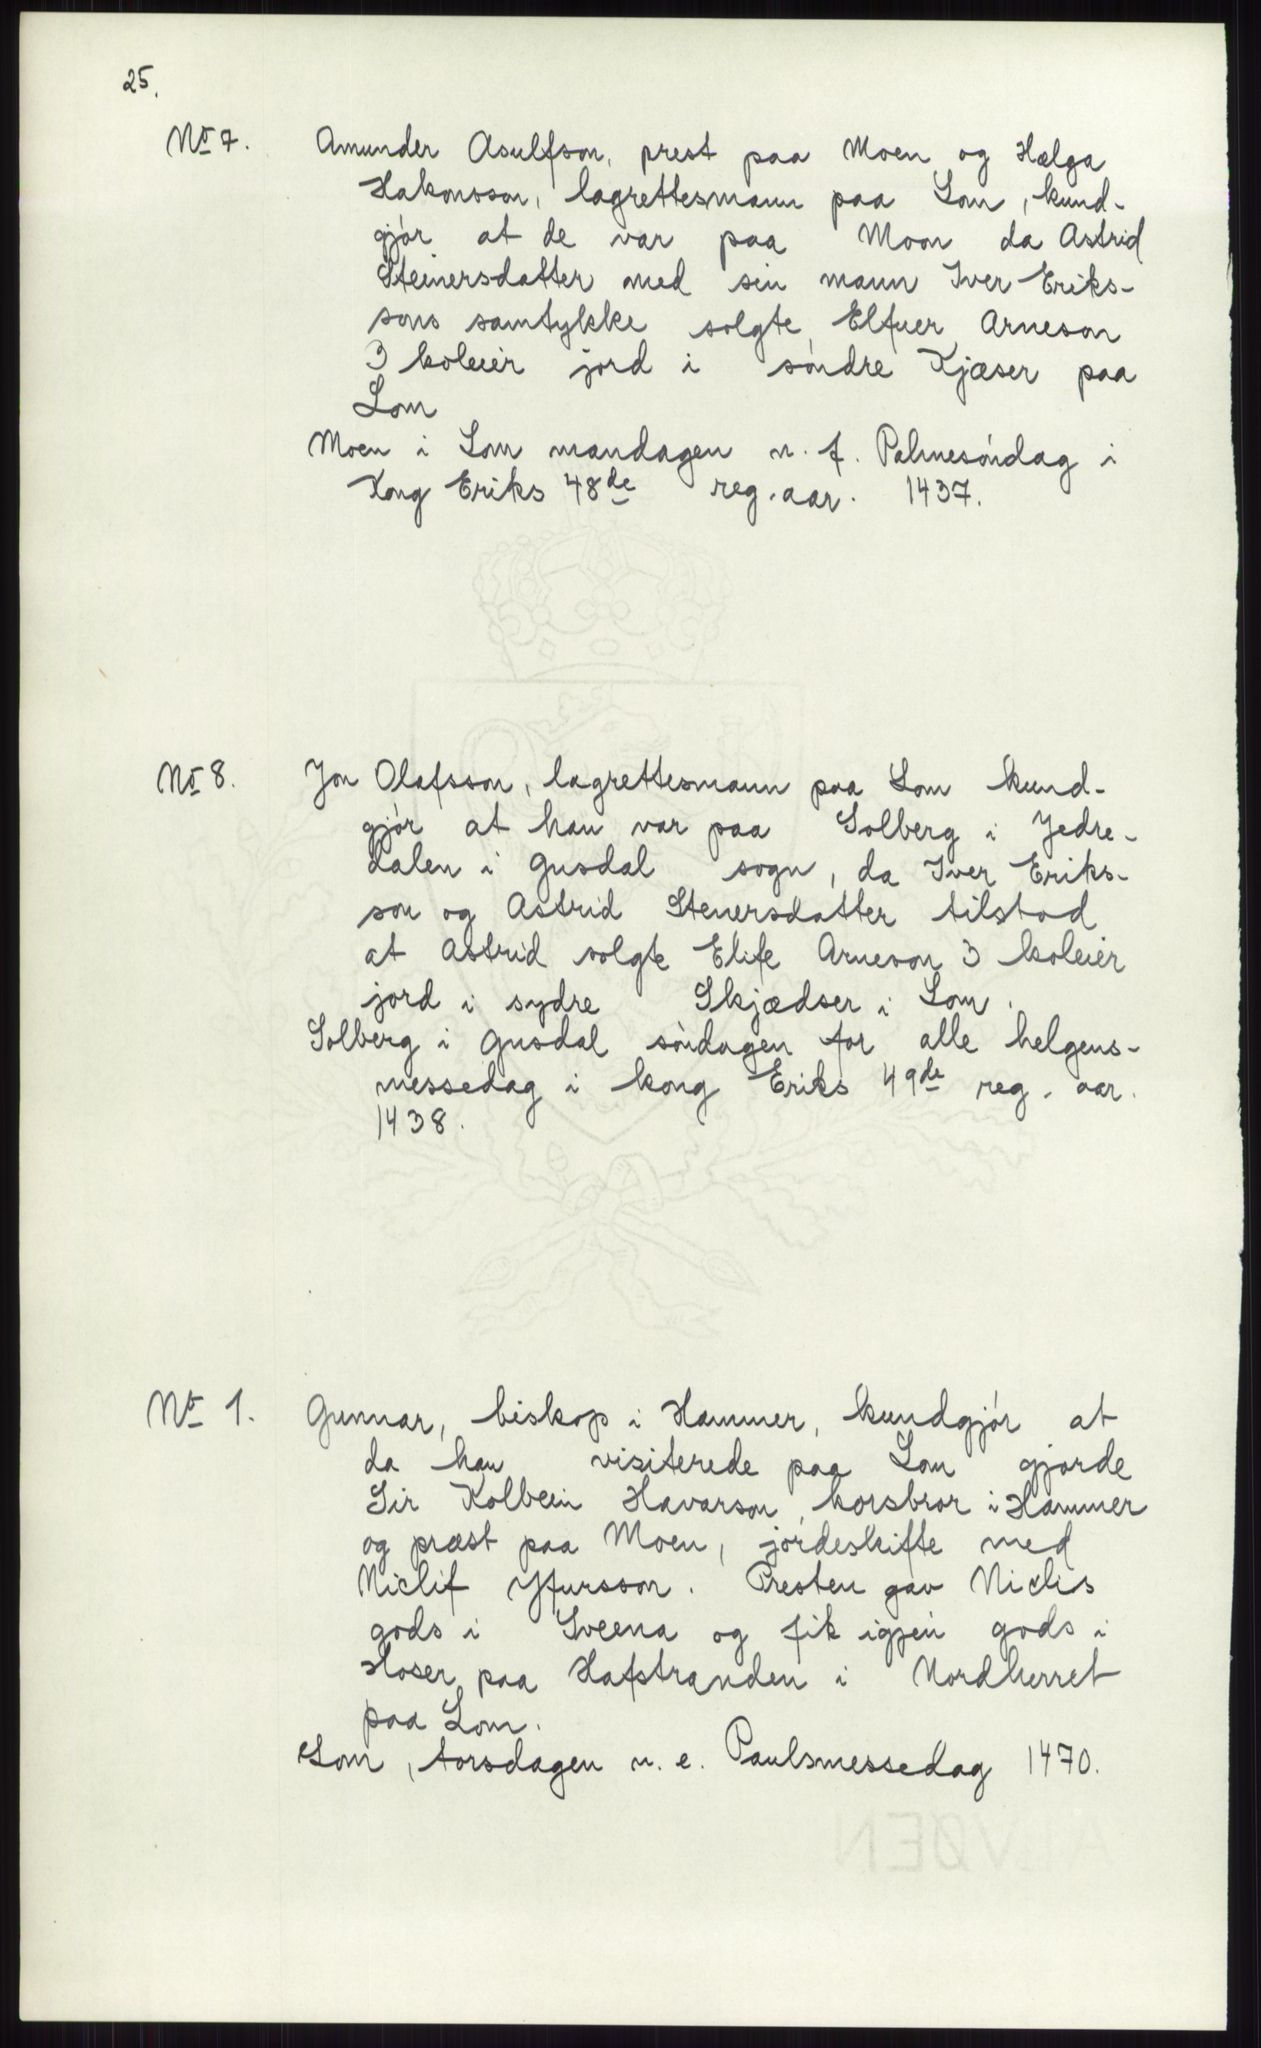 25.
No 7. Amunder Asulfson, prest paa Moen og Hælga
Hakonsson, lagrettesmann paa Lom, kund-
gjør at de var paa Moon da Astrid
Steinersdatter med sin mann Iver Eriks-
sons samtykke solgte Elfuer Arneson
3 koleier jord i søndre Kjæser paa
Lom
Moen i Lom mandagen n. f. Palmesøndag i
Kong Eriks 48de reg. aar. 1437.
No 8. Jon Olafsson, lagrettesmann paa Lom kund-
gjør at han var paa Solberg i Jedre-
dalen i Gusdal sogn, da Iver Eriks-
son og Astrid Stenersdatter tilstod
at Astrid solgte Elife Arneson 3 koleier
jord i sydre Skjædser i Lom.
Solberg i Gusdal søndagen for alle helgens-
messedag i kong Eriks 49de reg. aar.
1438.
No 1. Gunnar, biskop i Hammer, kundgjør at
da han visiterede paa Lom gjorde
Sir Kolbein Havarson, korsbror i Hammer
og præst paa Moen, jordeskifte med
Niclif Yfursson. Presten gav Niclis
gods i Sveena og fik igjen gods i
Hoser paa Hafstranden i Nordherret
paa Lom.
Lom, torsdagen n. e. Paulsmessedag 1470.
ALVØEN